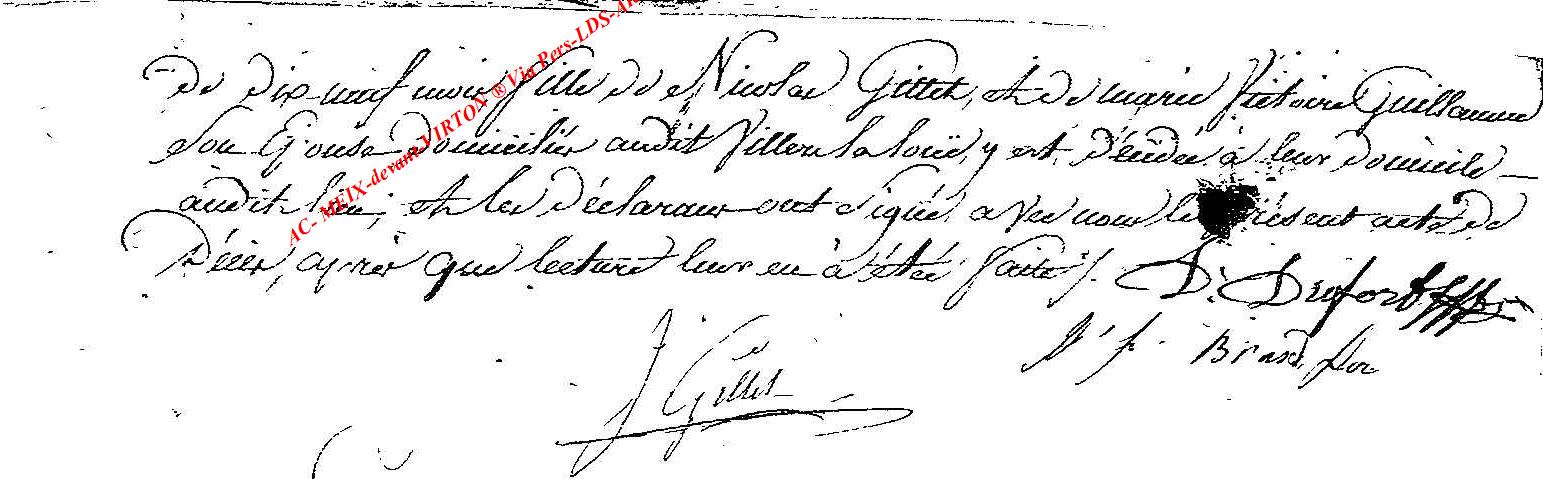 AC- MEIX-devant-VIRTON ® Via Pers-LDS-AR
de dix neuf mois fille de Nicolas Gillet, et de marie Victoire Guillaume
Son Epouse Domiciliés audit Villers la loüe, y est, décédée, à leur domicile
audit lieu, et les déclarans ont signé, avec nous le présent acte de
Décès, après que lecture leur en à étée faite ./.
J Gillet